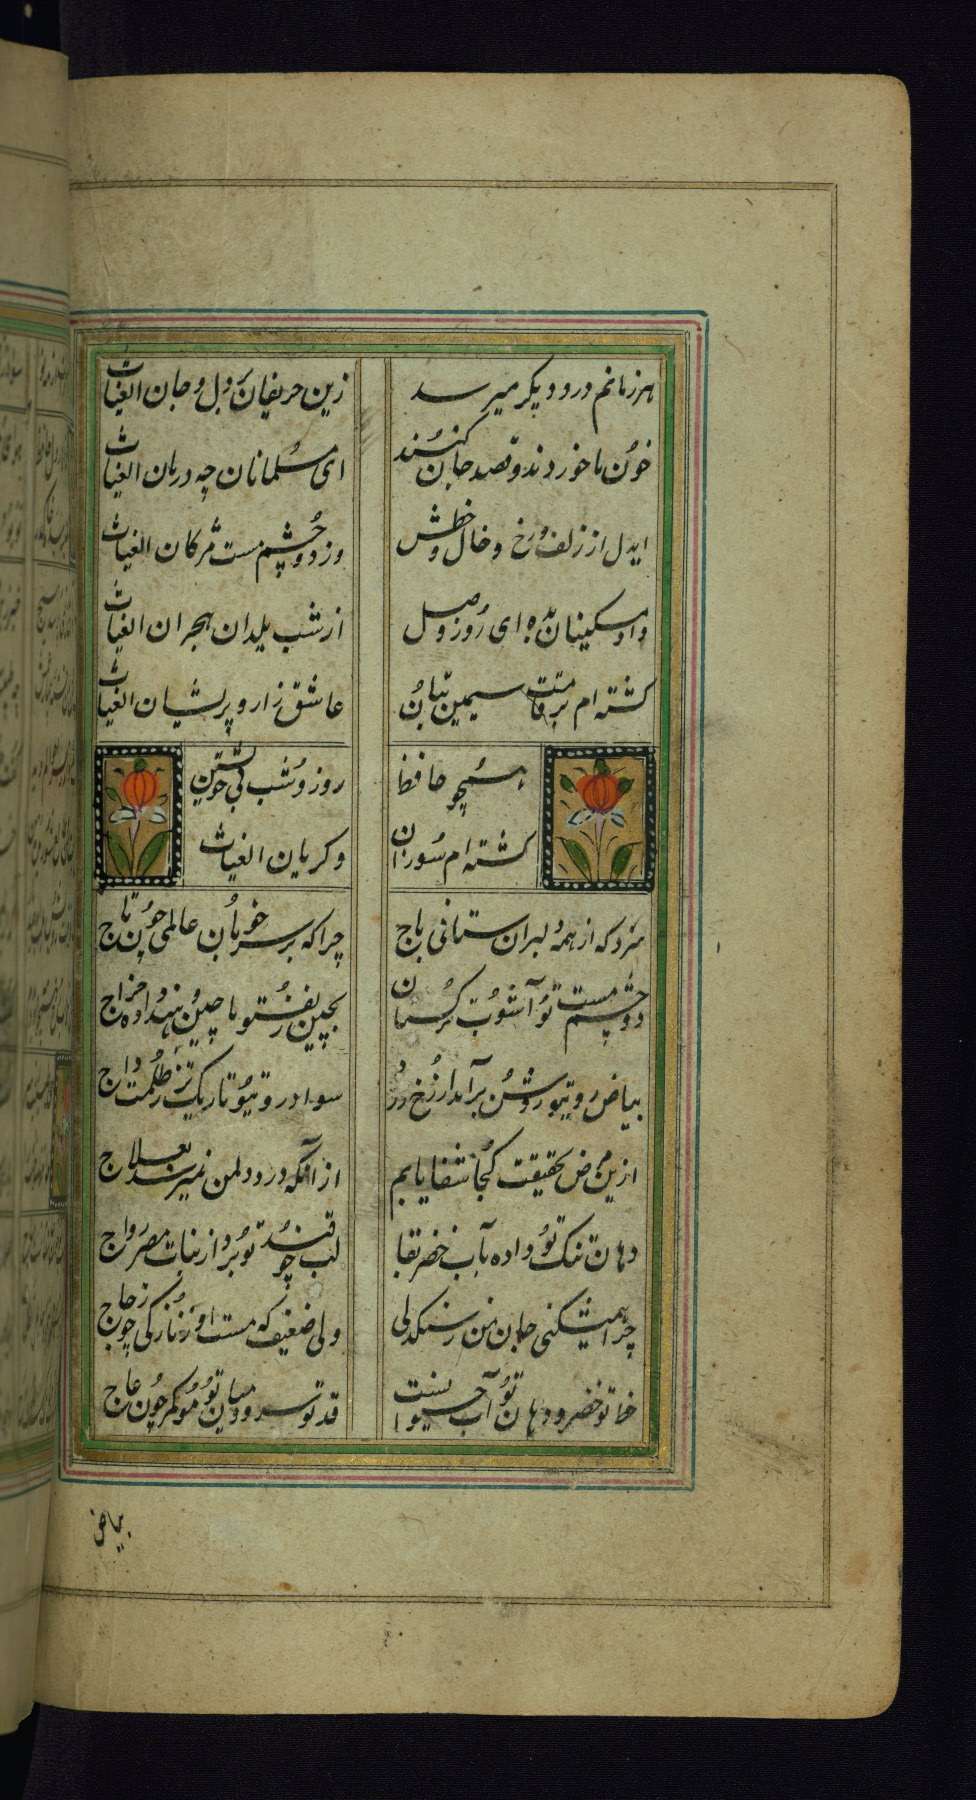 هر زمانم درد دیگر میرسد زین حریفان بر دل و جان الغیاث
خون ما خوردند و قصد جان کنند ای مسلمانان چه درمان الغیاث
ایدل از زلف و رخ و خال و خطش وز دو چشم مست مژگان الغیاث
داد مسکینان بده ای روز وصل از شب یلدای هجران الغیاث
کشته ام بر قامت سیمین بتان عاشق زار و پریشان الغیاث
همچو حافظ روز و شب بی خویشتن
کشته ام سوزان و گریان الغیاث
سزد که از همه دلبران ستانی باج چرا که بر سر خوبان عالمی چون تاج
دو چشم مست تو آشوب ترکستان بچین زلف تو ماچین و هند داده خراج
بیاض روی تو روشن برآمد از رخ روز سواد موی تو تاریک تر ز ظلمت داج
ازین مرض بحقیقت کجا شفا یابم از آنکه درد دل من نمیرسد بعلاج
دهان تنک تو داده بآب خضر بقا لب چو قند تو برد از نبات مصر رواج
چرا همیشکنی جان من ز سنکدلی ولی ضعیف که هست او ز نازکی چو زجاج
خط تو خضر و دهان تو آب حیوانست قد تو سرو و میان تو مو کمر چون عاج
بیاض